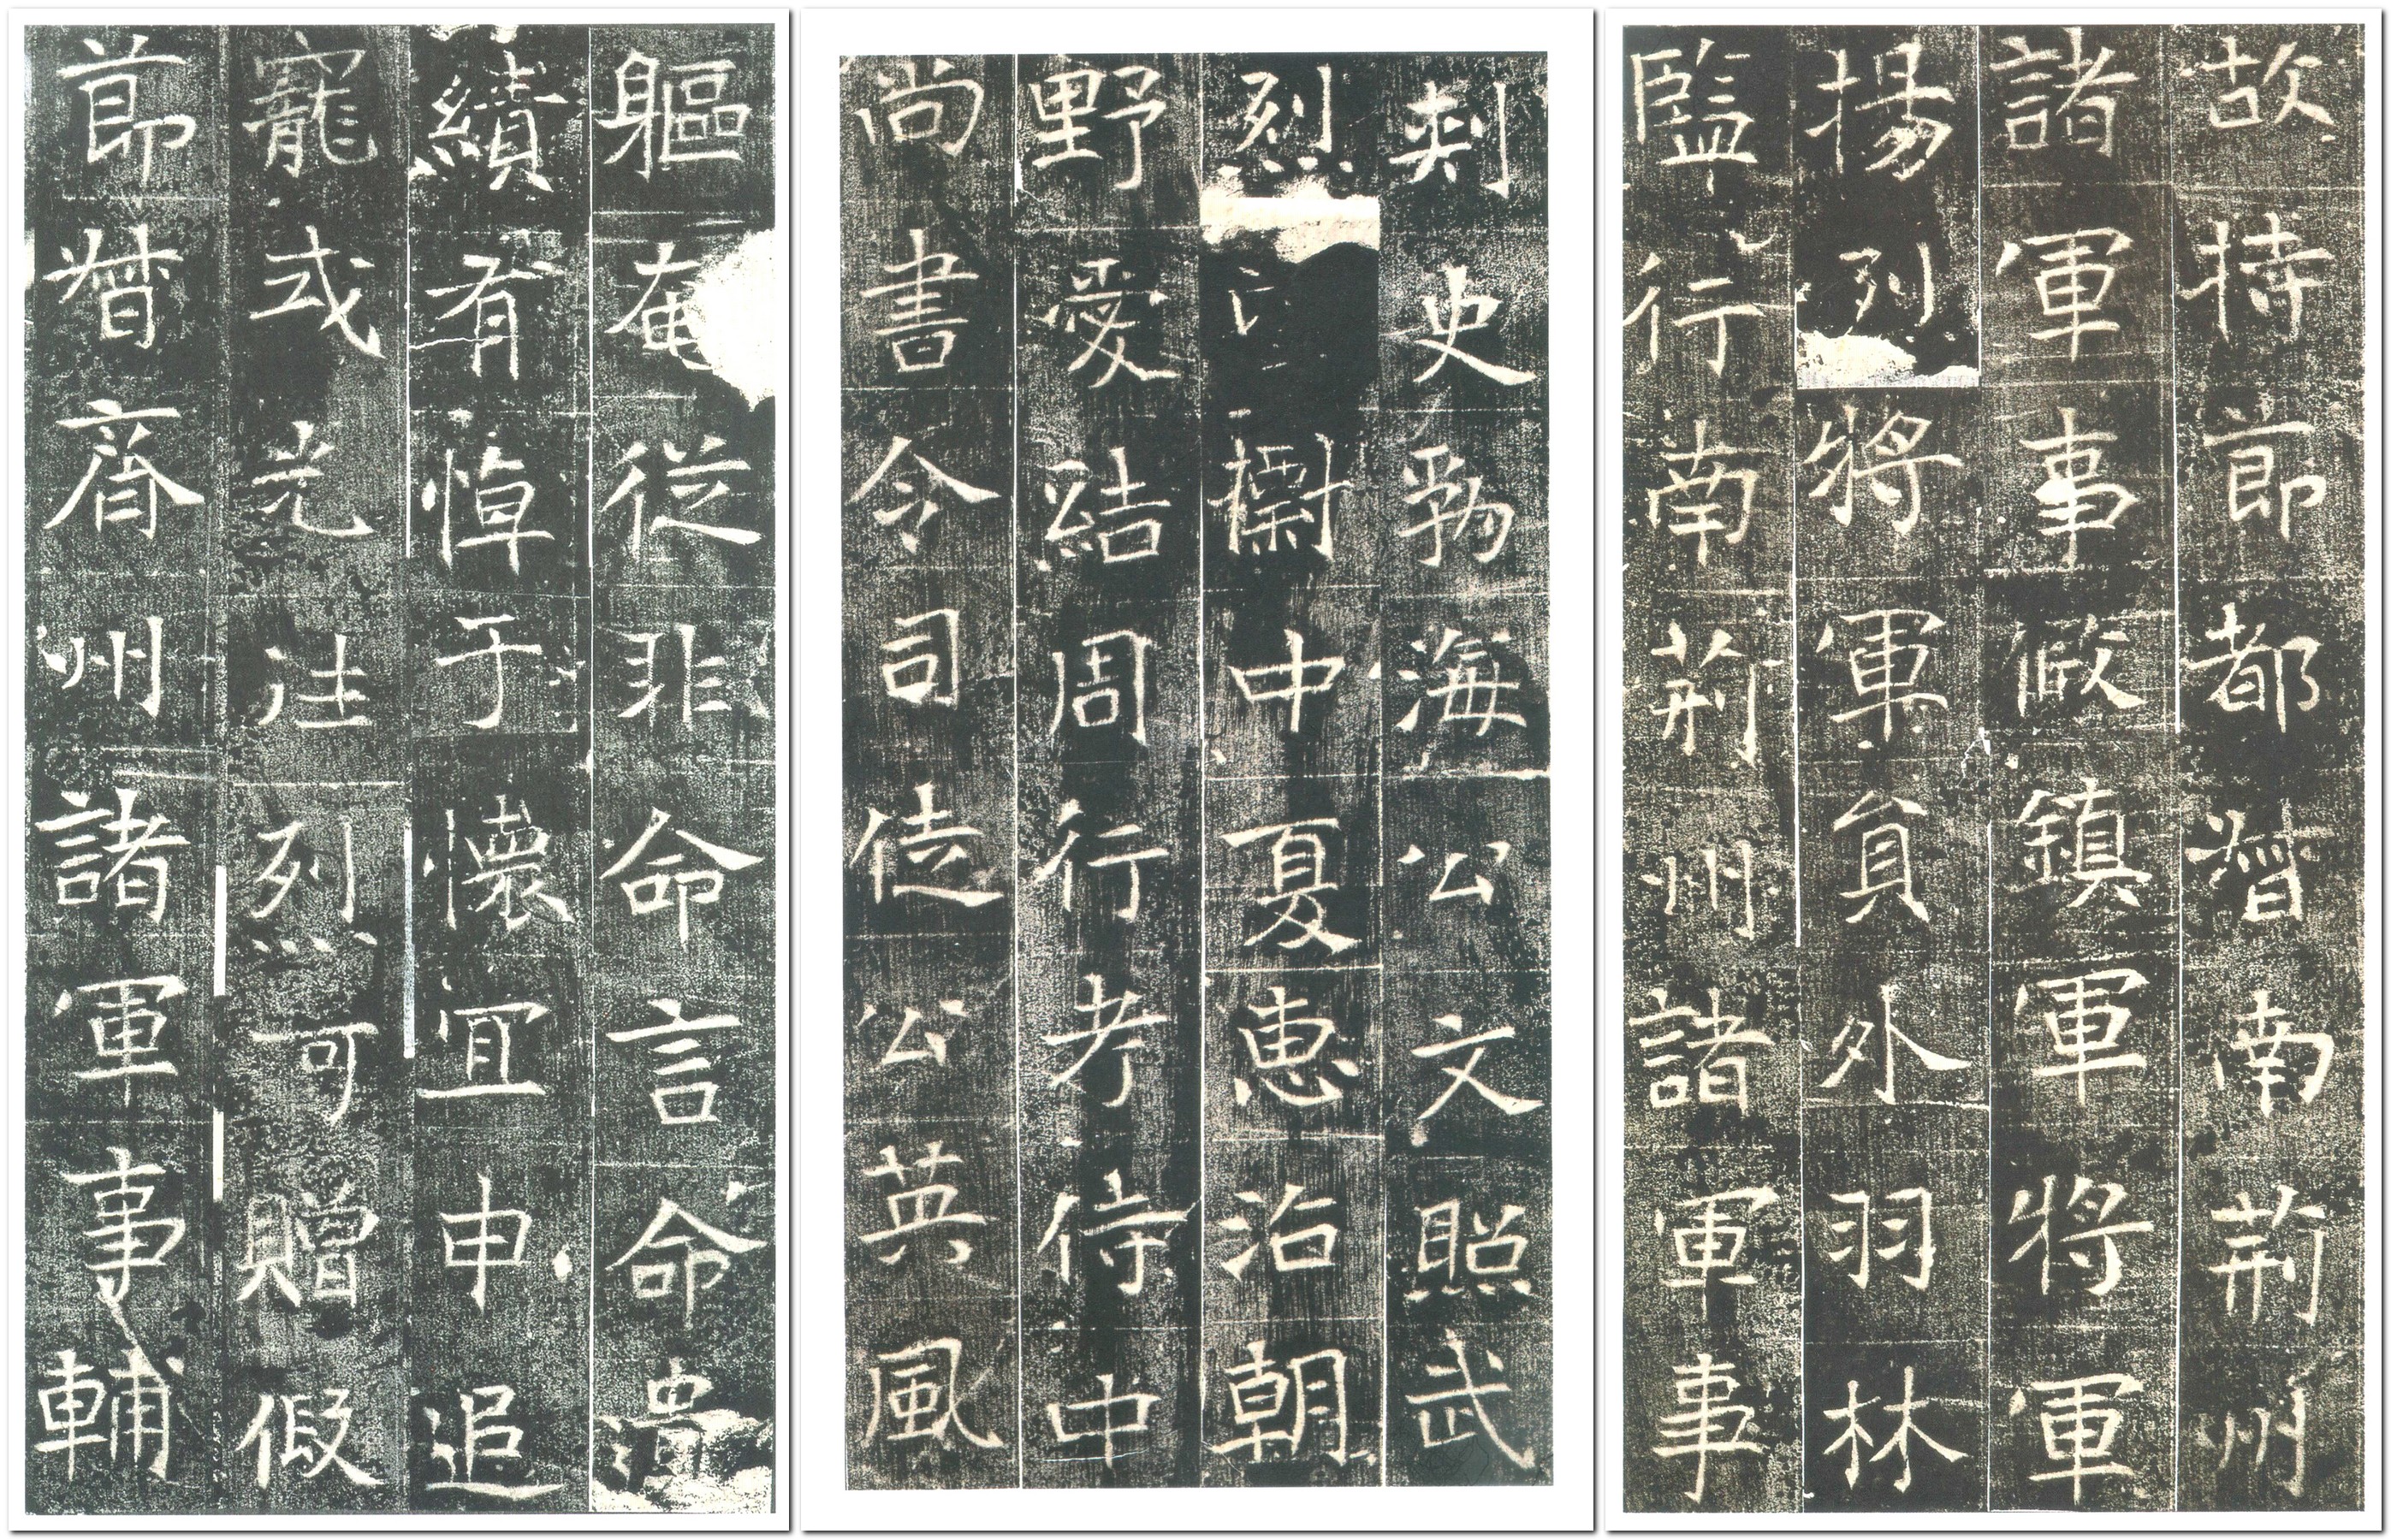 故持節都督南荊州
諸軍事假鎮軍將軍
揚烈將軍員外羽林
監行南荊州諸軍事
刺史勃海公文照武
烈中夏惠洽朝
野愛結周行考侍中
尚書令司徒公英風
軀奄從非命言命遺
績有悼于懷宜申追
寵式光往烈可贈假
節督齊州諸軍事輔